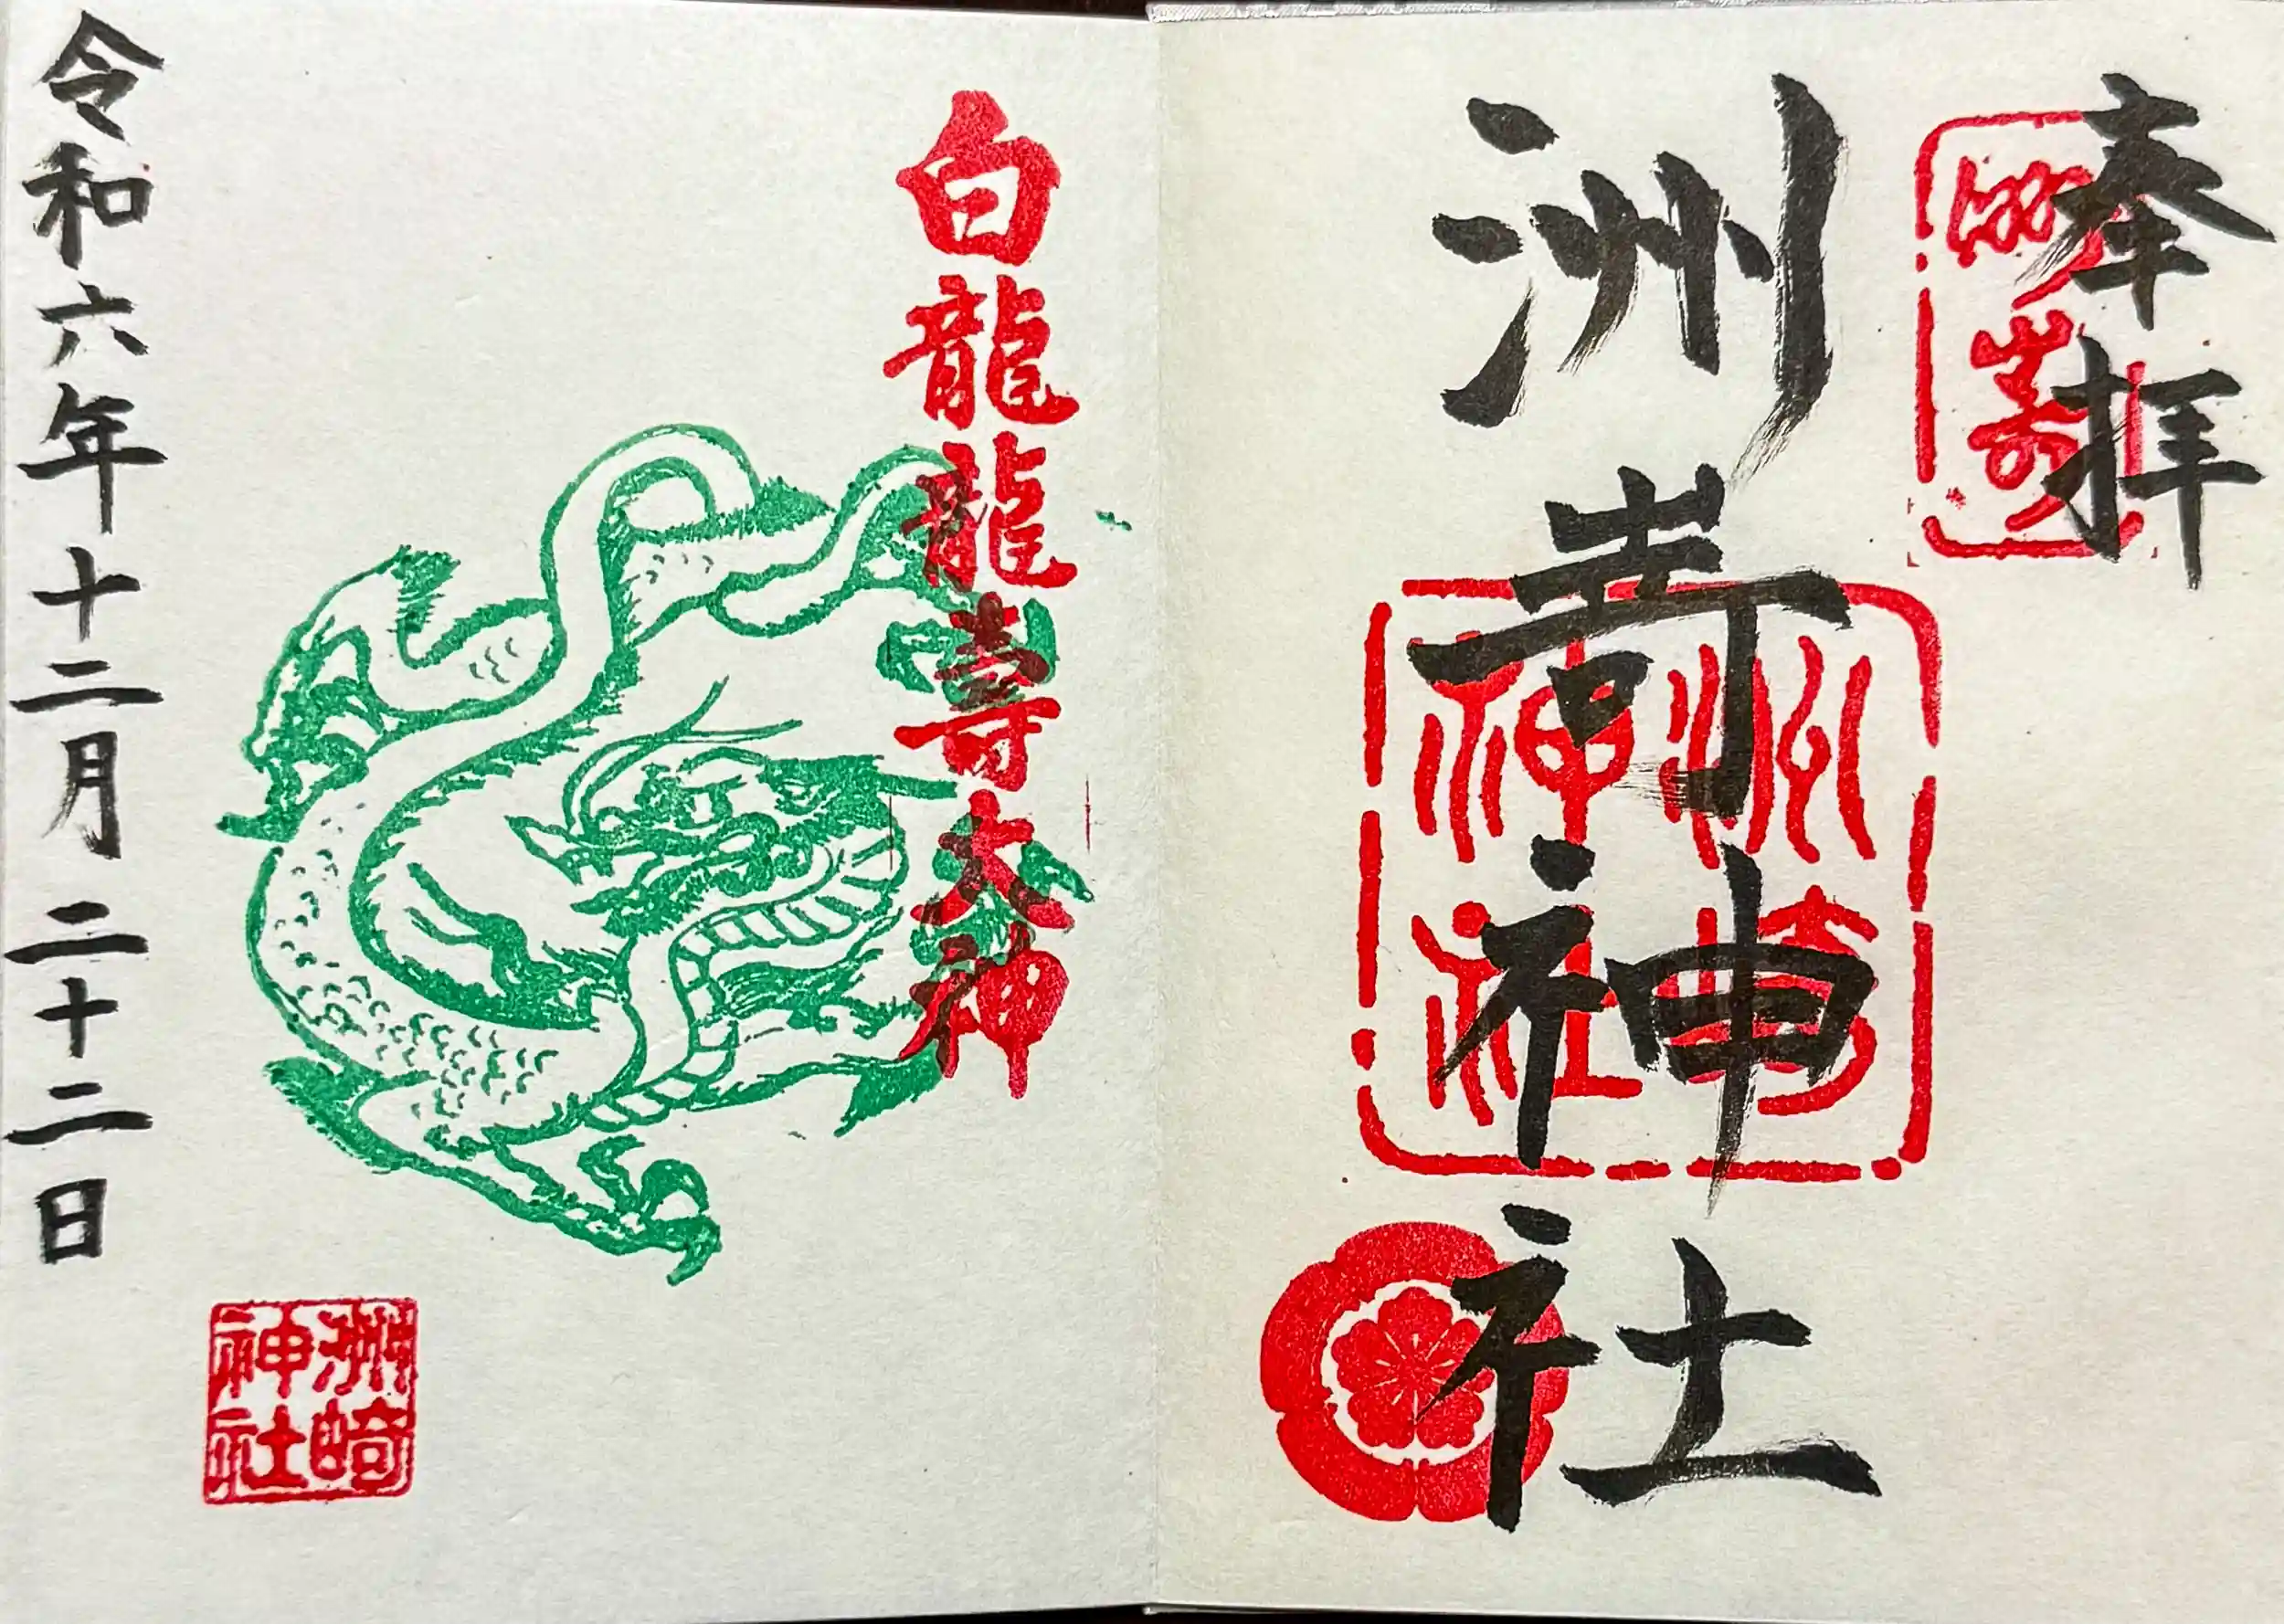 奉拝
洲嵜
洲嵜神社
洲崎神社
白龍龍壽大神
令和六年十二月二十二日
洲崎神社